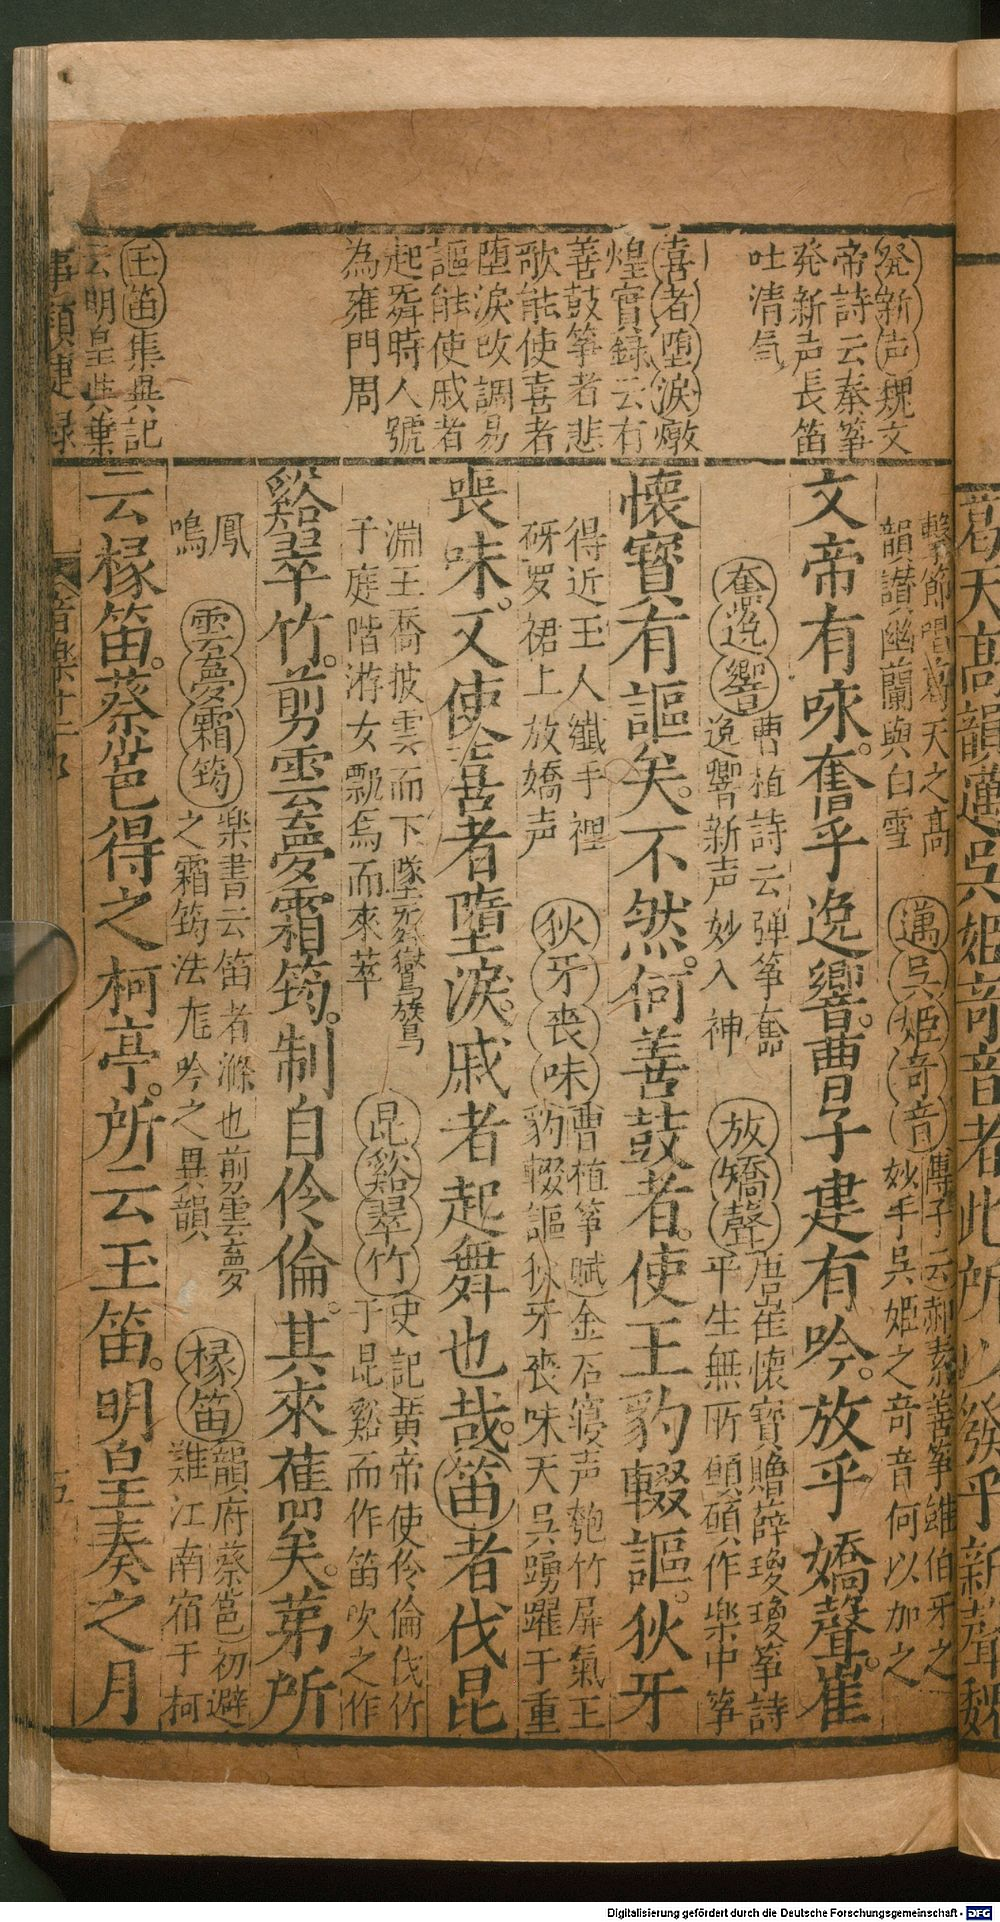 葛天高韻邁吳姬奇音者此所以發乎新聲魏
発新声魏文
帝詩云秦筝
発新声長笛
吐清気
喜者堕淚燉
煌實錄云有
善鼓筝者悲
歌能使喜者
堕淚改調易
謳能使戚者
起舞時人號
為雍門周
王笛集異記
云明皇
擊節唱葛天之高
韻讃幽蘭與白雪
邁吳姬奇音
傅子云郝素善筝雖伯牙之
妙手吳姬之奇音何以加之
文帝有咏奮乎逸響曹子建有吟放乎嬌聲崔
奮逸響
曹植詩云弾筝奮
逸響新声妙入神
放矯聲
唐崔懐寶贈薛瓊瓊筝詩
平生無所願願作楽中筝
懐寶有謳矣不然何善鼓者使王豹輟謳狄牙
得近玉人纖手裡
砑罗裙上放嬌声
狄牙喪味
曹植筝賦金石寝声匏竹屏氣王
豹輟謳狄牙喪味天吳踴躍于重
喪味又使善者墮淚戚者起舞也哉笛者伐昆
淵王喬披雲而下墜
于庭階游女飄焉而來萃
昆谿翠竹
史記黄帝使伶倫伐竹
于昆谿而作笛吹之作
谿翠竹剪雲夢霜筠制自伶倫其來舊矣第所
鳳
鳴
雲夢霜筠
楽書云笛者滌也剪雲夢
之霜筠法龍吟之異韻
椽笛
韻府蔡邕初避
難江南宿于柯
云椽笛蔡邕得之柯亭所云玉笛明皇奏之月
事類捷録
音楽十二
五
Digitalisierung gefördert durch die Deutsche Forschungsgemeinschaft - DFG